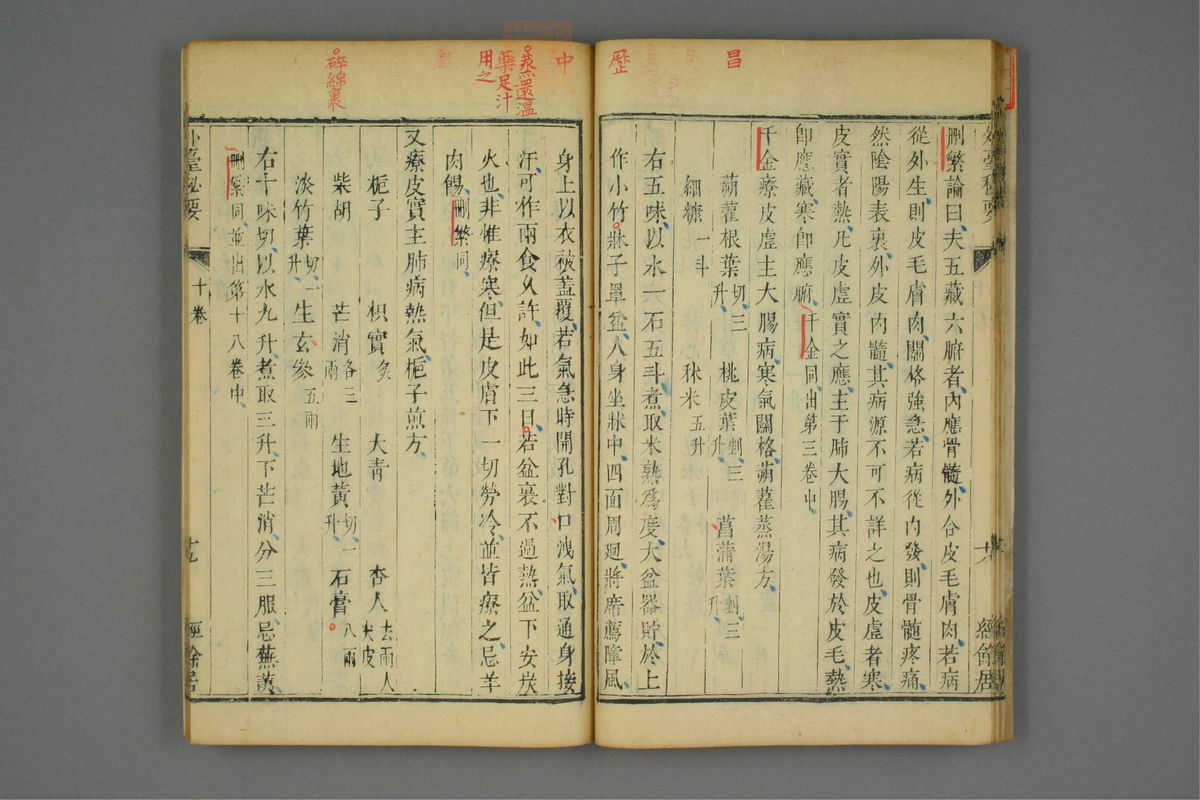 昌
歷
外臺秘要
經餘居
刪繁論曰夫五藏六腑者內應骨髓外合皮毛膚肉若病
從外生則皮毛膚肉關格強急若病從內發則骨髓疼痛
然陰陽表裏外皮內髓其病源不可不詳之也皮虛者寒
皮實者熱凡皮虛實之應主于肺大腸其病發於皮毛熱
即應藏寒即應腑千金同出第三卷中
千金療皮虛主大腸病寒氣關格蒴藋蒸湯方
蒴藋根葉切三升 桃皮葉剉三升 菖蒲葉剉三升
細糠一斗 秫米五升
右五味以水一石五斗煮取米熟為度大盆器貯於上
作小竹牀子罩盆人身坐牀中四面周廻將席薦障風
中
蒸還溫
藥足汁
用之
碎綿裹
身上以衣被蓋覆若氣急時開孔對口洩氣取通身接
汗可作兩食久許如此三日若盆裏不過熱盆下安炭
火也非惟療寒但是皮膚下一切勞冷並皆療之忌羊
肉餳刪繁同
又療皮實主肺病熱氣梔子煎方
梔子 枳實炙 大青 杏人去兩人尖皮
柴胡 芒消各三兩 生地黃切一升 石膏八兩
淡竹葉切一升 生玄參五兩
右十味切以水九升煮取三升下芒消分三服忌蕪荑
刪繁同並出第十八卷中
外臺秘要
十卷
十九
經餘居